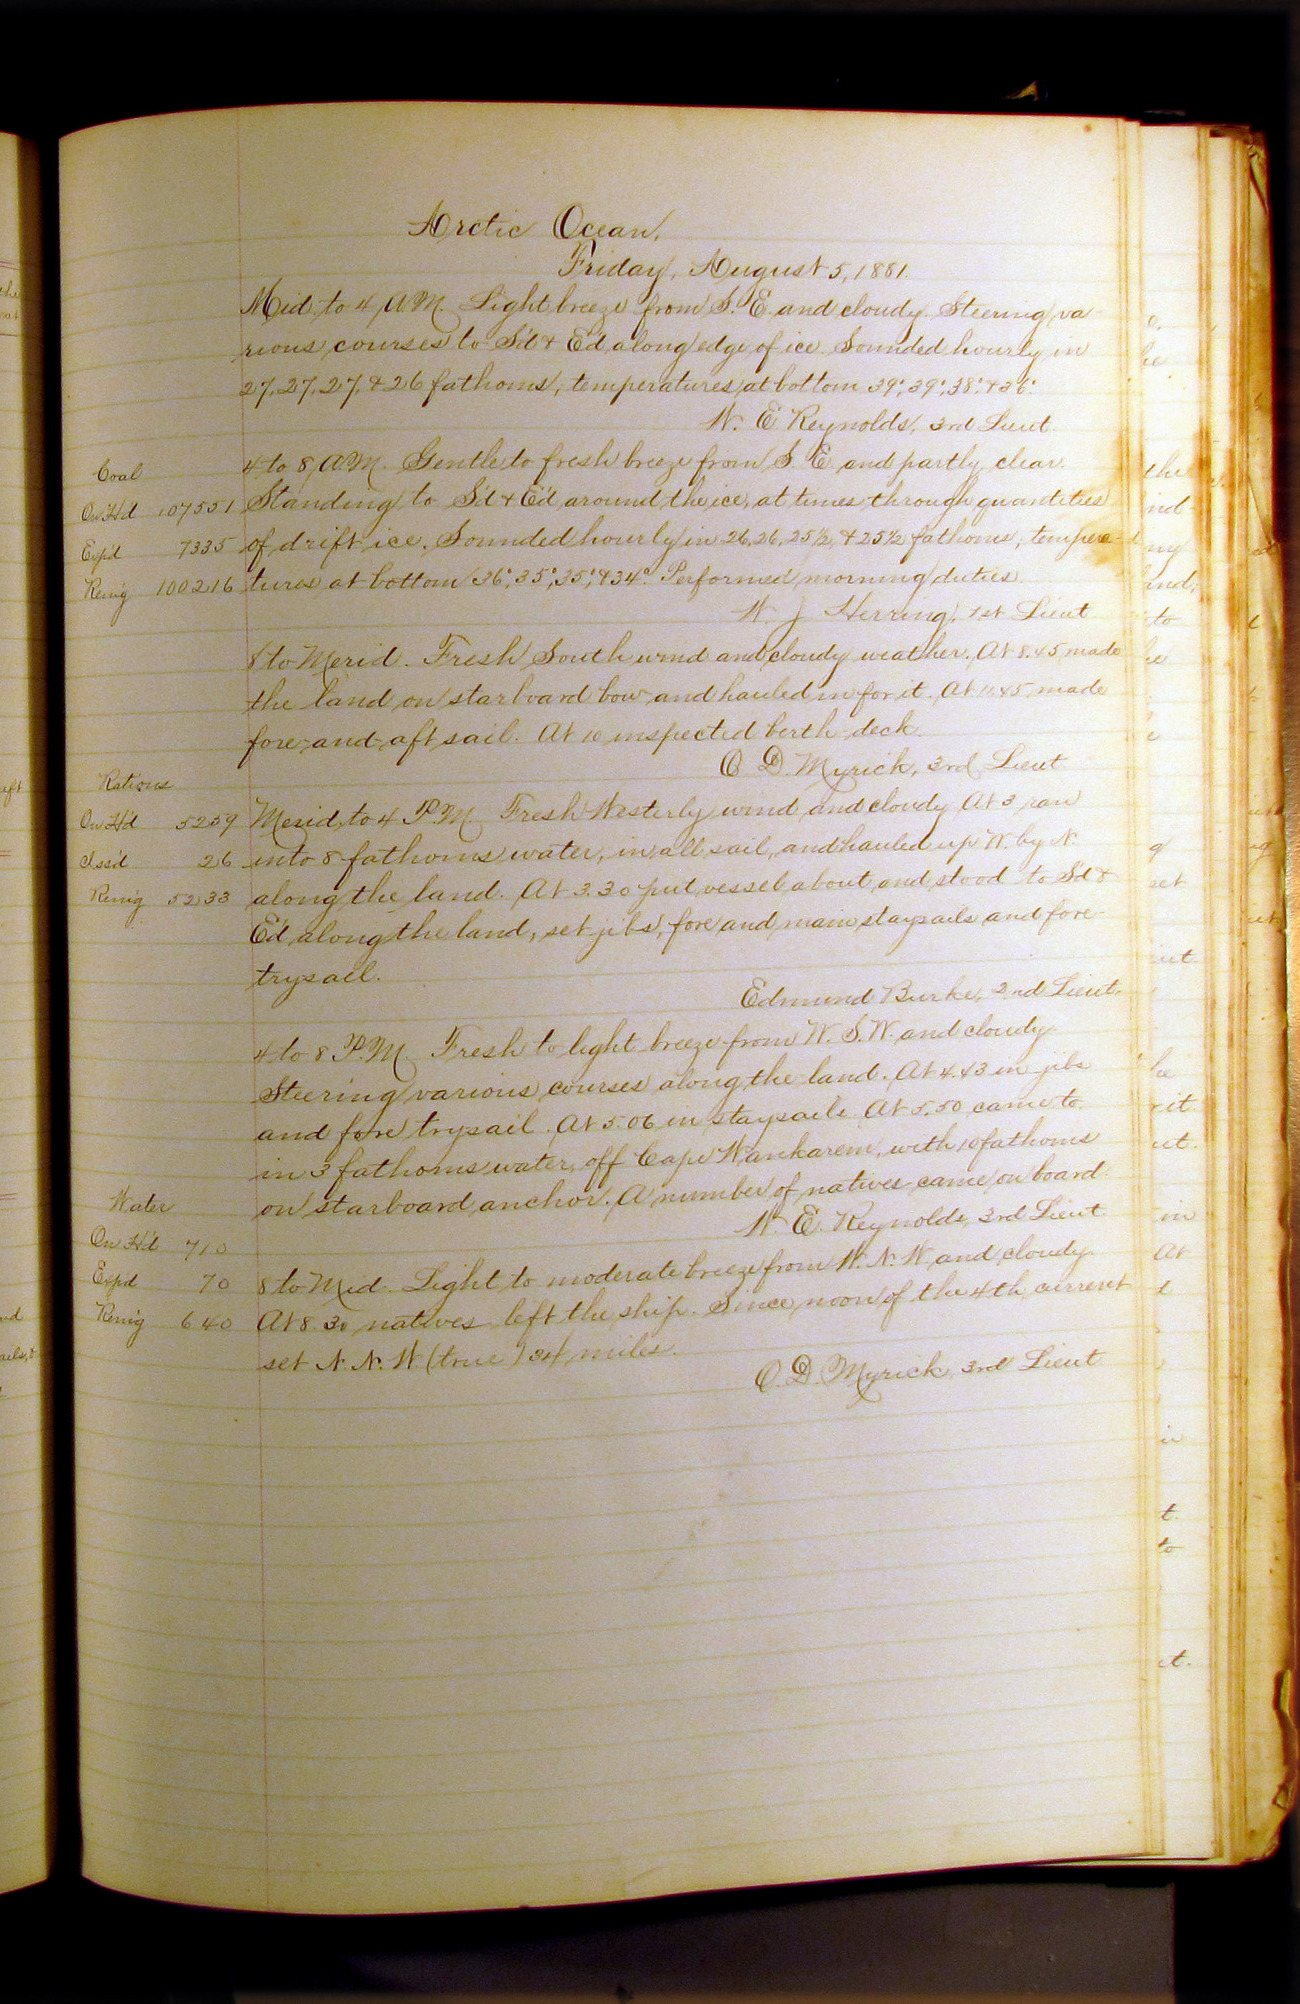 Arctic Ocean,
Friday, August 5, 1881.
Mid. to 4 A.M. Light breeze from S. E. and cloudy. Steering va-
rious courses to S'd & E'd along edge of ice. Sounded hourly in
27, 27, 27, & 26 fathoms, temperatures at bottom 39°, 39°, 38°, & 36°.
W. E. Reynolds, 3rd Lieut.
4 to 8, A.M. Gentle to fresh breeze from S. E. and partly clear.
Coal
Standing to S'd & E'd around the ice, at times through quantities
On H'd 107551
of drift ice. Sounded hourly in 26, 26, 25 1/2, & 25 1/2 fathoms, tempera-
Exp'd 7335
tures at bottom 36°, 35°, 35°, & 34°. Performed morning duties.
Rem'g 100216
W. J. Herring, 1st Lieut
8 to Merid. Fresh South wind and cloudy weather. At 8.45 made
the land on starboard bow and hauled in for it. At 11.45 made
fore-and-aft sail. At 10 inspected berth-deck.
O. D. Myrick, 3rd Lieut
Rations
Merid. to 4 P.M. Fresh Westerly wind and cloudy. At 3, ran
On H'd 5259
into 8 fathoms water, in all sail, and hauled up W. by N.
Iss'd 26
along the land. At 3.30 put vessel about and stood to S'd &
Rem'g 5233
E'd along the land, set jibs, fore and main staysails and fore-
trysail.
Edmund Burke, 2nd Lieut.
4 to 8 P.M. Fresh to light breeze from W. S. W. and cloudy.
Steering various courses along the land. At 4.43 in jibs
and fore trysail. At 5.06 in staysails. At 5.50 came to
in 3 fathoms water, off Cape Wankarem, with 10 fathoms
on starboard anchor. A number of natives came on board.
W. E. Reynolds, 3rd Lieut.
Water
On H'd 710
8 to Mid. Light to moderate breeze from W. N. W. and cloudy.
Exp'd 70
At 8.30 natives left the ship. Since noon of the 4th, current
Rem'g 640
set N. N. W. (true) 34 miles.
O. D. Myrick, 3rd Lieut